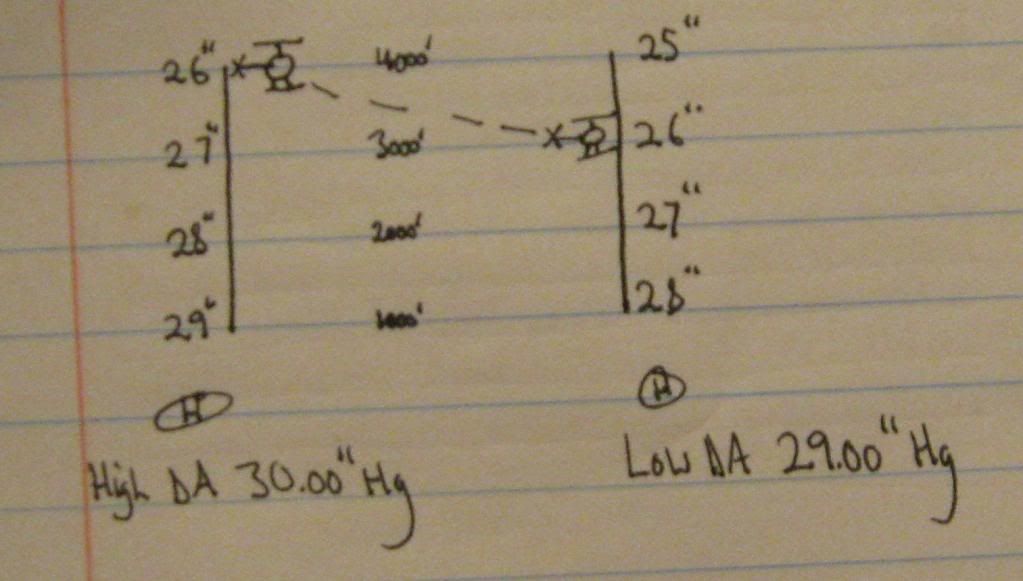 26" 4000' 25"
27" 3000' 26"
28" 2000' 27"
29" 1000' 28"
H H
High DA 30.00" Hg Low DA 29.00" Hg